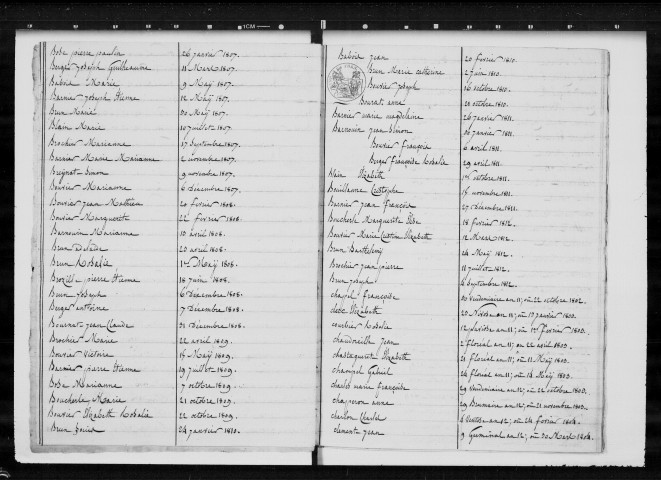 Bobe pierre paulin 26 janvier 1807.
Berger Joseph Guilleaume 11 Mars 1807.
Marie 9 Maÿ 1807.
Barnier Joseph Etienne 12 Maÿ 1807.
Brun Marie 20 Maÿ 1807.
Blain Marie 10 juillet 1807.
Brochier Marianne 17 Septembre 1807.
Barnier Marie Marianne 2 novembre 1807.
Simon 9 novembre 1807.
Bouvier Marianne 6 Décembre 1807.
Bouvier jean Mathieu 20 fevrier 1808.
Bouvier Marguerite 22 fevrier 1808.
Barnouin Marianne 10 avril 1808.
Brun 20 avril 1808.
Brun Rosalie 1er Maÿ 1808.
pierre Etienne 18 juin 1808.
Brun Joseph 6 Décembre 1808.
Berger antoine 7 Décembre 1808.
Bournat jean Claude 31 Décembre 1808.
Brochier Marie 22 avril 1809.
Bouvier Victoire 15 Maÿ 1809.
Barnier pierre Etienne 19 juillet 1809.
Bobe Marianne 7 octobre 1809.
Boucherle Marie 21 octobre 1809.
Bouvier Elizabeth Rosalie 22 octobre 1809.
Brun 24 janvier 1810.
jean 20 fevrier 1810.
Brun Marie catherine 2 juin 1810.
Bouvier joseph 16 octobre 1810.
Bourat anne 21 octobre 1810.
Barnier marie magdelaine 26 janvier 1811.
Barnouin jean Simon 30 janvier 1811.
Bouvier françois 6 avril 1811.
Berger françoise Rosalie 29 avril 1811.
Blain Elizabeth 1er octobre 1811.
Bouillanne 15 novembre 1811.
Barnier jean françois 27 Décembre 1811.
Boucherle Marguerite 18 fevrier 1812.
Bouvier Marie Elizabeth 12 Mars 1812.
Brun Barthelemy 24 Maÿ 1812.
Brochier jean pierre 11 juillet 1812.
Brun joseph 6 Septembre 1812.
chapel françoise 30 Vendemiaire an 11; ou 22 octobre 1802.
Elizabeth 20 Nivose an 11; ou 10 janvier 1803.
courbier Rosalie 12 pluviose an 11; ou 1er fevrier 1803.
chaudreille jean 2 floréal an 11; ou 22 avril 1803.
Elizabeth 21 floréal an 11; ou 11 Maÿ 1803.
champel Gabriel 24 floréal an 11; ou 14 Maÿ 1803.
marie françoise 29 Vendemiaire an 12; ou 22 octobre 1803.
chaperon anne 29 Brumaire an 12; ou 21 novembre 1803.
charlon Charles Ventose an 12; ou 24 fevrier 1804.
clement jean 9 Germinal an 12; ou 30 Mars 1804.